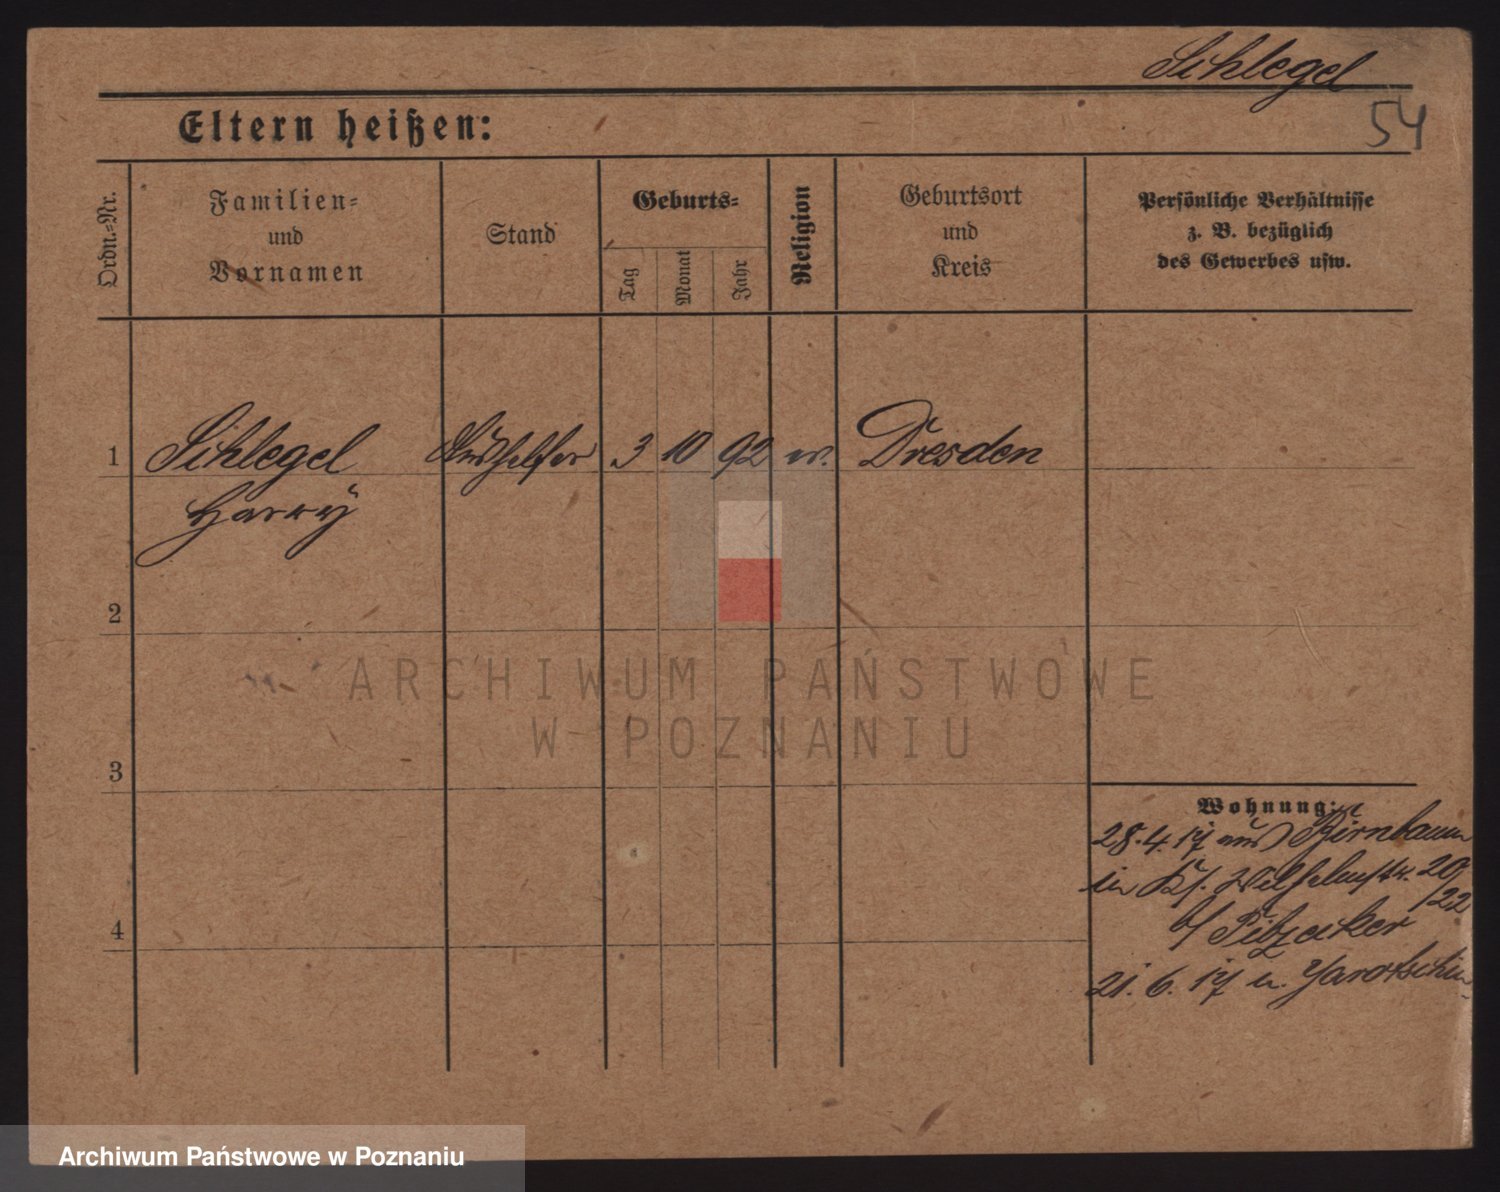 Schlegel
54
Eltern heißen:
Ordn.-Nr.
Familien-
und
Vornamen
Stand
Geburts-
Tag
Monat
Jahr
Religion
Geburtsort
und
Kreis
Persönliche Verhältnisse
z. B. bezüglich
des Gewerbes usw.
1 Schlegel Aushelfer 3 10 92 ev. Dresden
Harry
2
3
4
Wohnung:
28.4.17 aus Birnbaum
in Kr. Wilhelmstr. 20
/22
b/
21.6.17 n. Jarotschin
ARCHIWUM PAŃSTWOWE
W POZNANIU
Archiwum Państwowe w Poznaniu